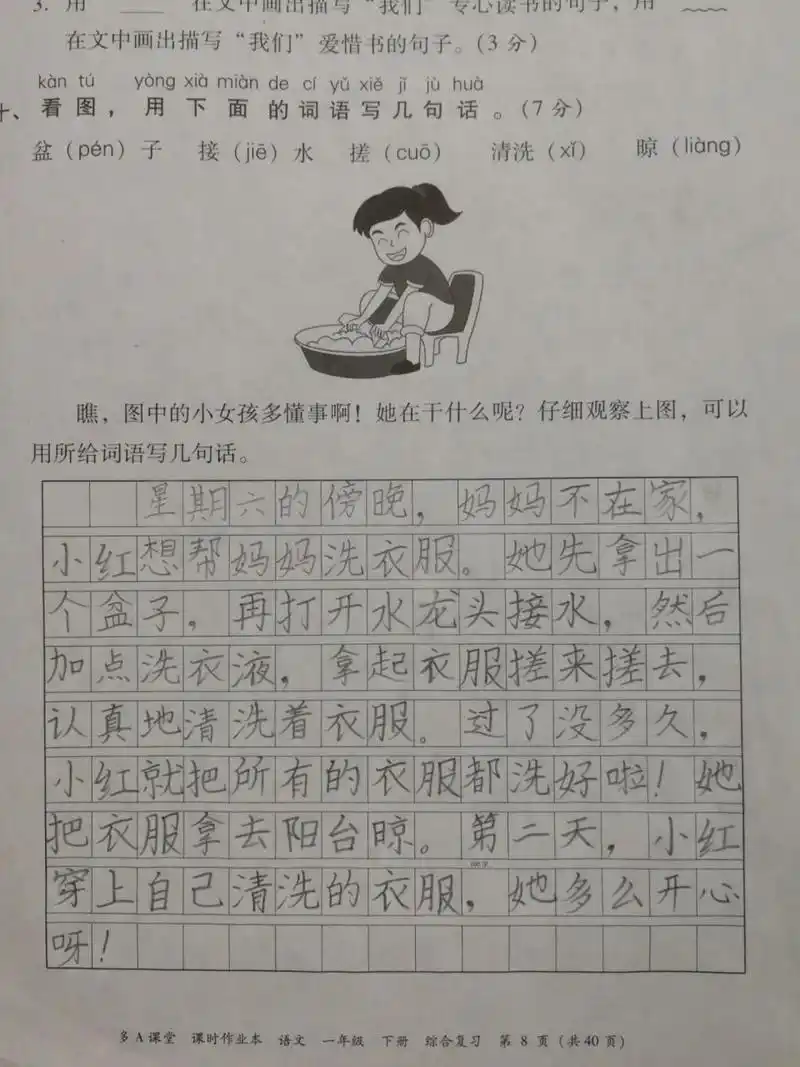 3. 用 ____ 在文中画出描写“我们”专心读书的句子，用
在文中画出描写“我们”爱惜书的句子。(3 分)
kàn tú yòng xià miàn de cí yǔ xiě jǐ jù huà
十、看图，用下面的词语写几句话。(7 分)
盆(pén)子 接(jiē)水 搓(cuō) 清洗(xǐ) 晾(liàng)
瞧，图中的小女孩多懂事啊！她在干什么呢？仔细观察上图，可以
用所给词语写几句话。
星期六的傍晚，妈妈不在家，
小红想帮妈妈洗衣服。她先拿出一
个盆子，再打开水龙头接水，然后
加点洗衣液，拿起衣服搓来搓去，
认真地清洗着衣服。过了没多久，
小红就把所有的衣服都洗好啦！她
把衣服拿去阳台晾。第二天，小红
穿上自己清洗的衣服，她多么开心
呀！
多 A 课堂 课时作业本 语文 一年级 下册 综合复习 第 8 页 (共 40 页)